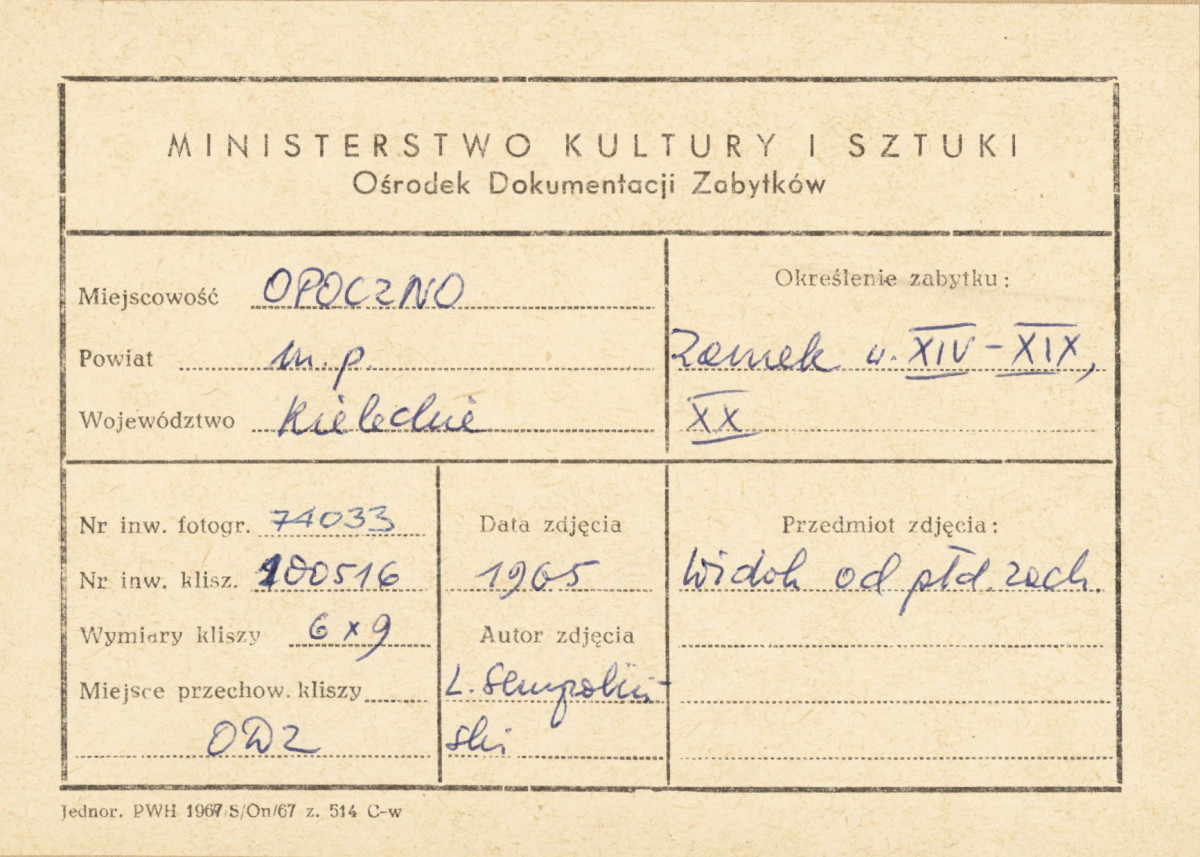 MINISTERSTWO KULTURY I SZTUKI
Ośrodek Dokumentacji Zabytków
Miejscowość OPOCZNO
Powiat m.p.
Województwo kieleckie
Określenie zabytku:
Zamek w. XIV–XIX,
XX
Nr inw. fotogr. 74033
Nr inw. klisz. 100516
Wymiary kliszy 6 x 9
Miejsce przechow. kliszy
ODZ
Data zdjęcia
1965
Autor zdjęcia
L. Sempoliń-
ski
Przedmiot zdjęcia:
Widok od płd. zach.
Jednor. PWH 1967 S/On/67 z. 514 C-w